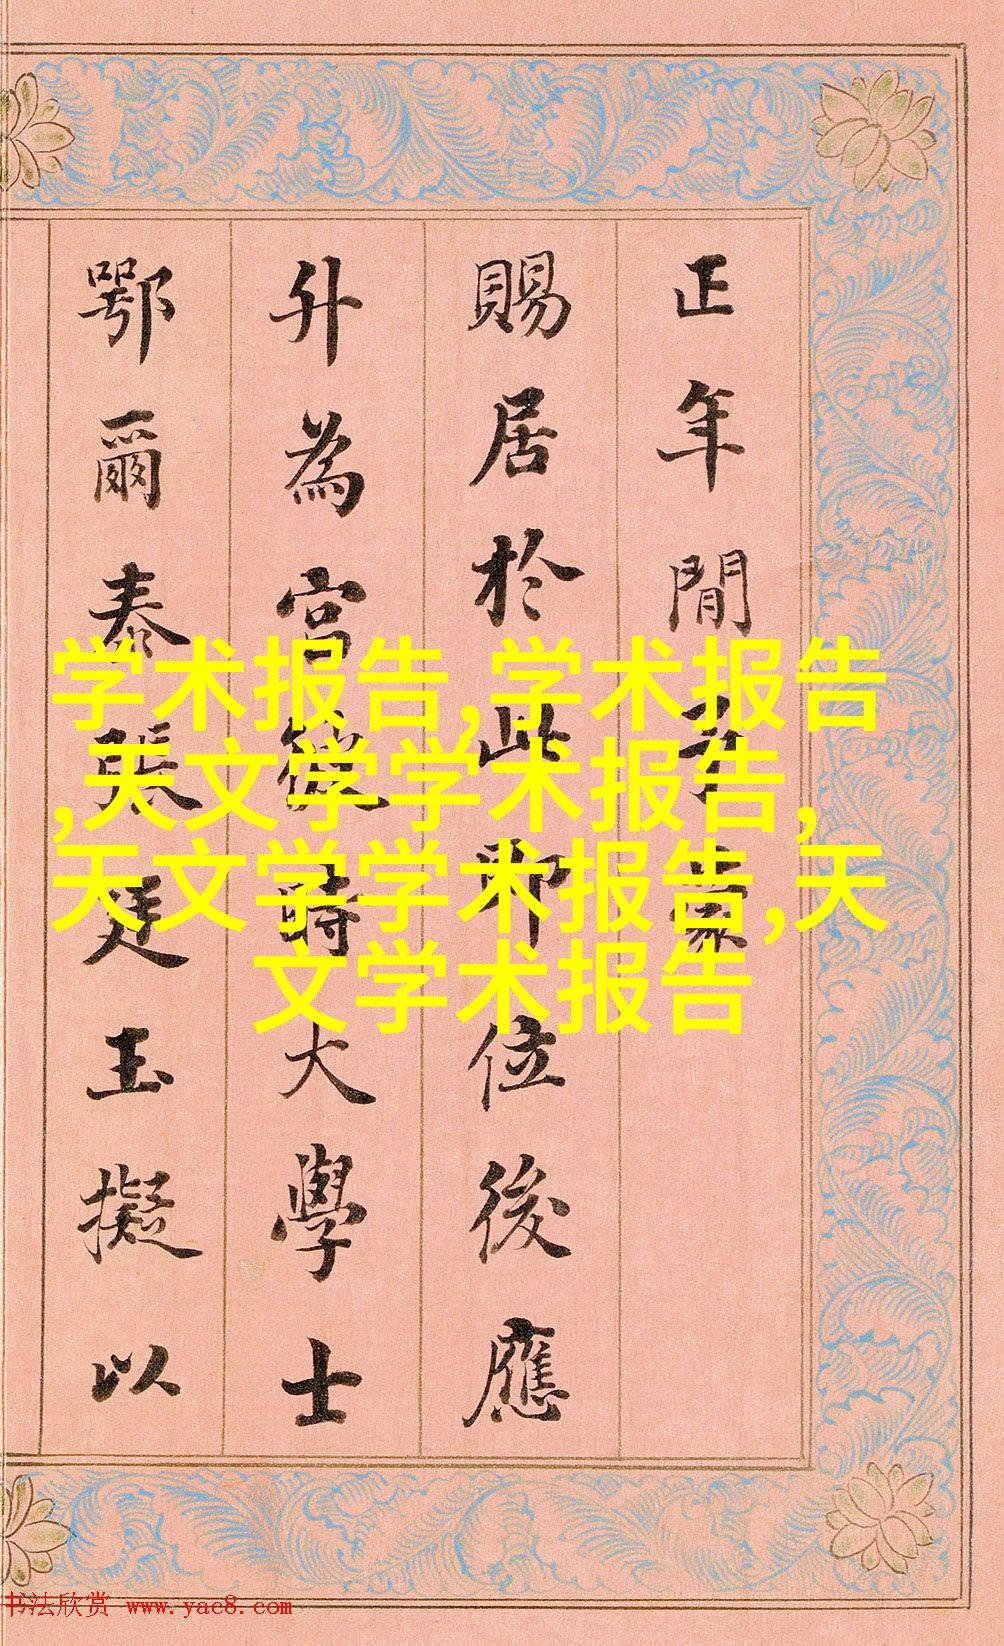 正年間蒙
賜居於此即位後應
升為宮時大學士
鄂爾泰張廷玉擬以
学术报告,学术报告
,天文学学术报告,
天文学学术报告,天
文学术报告
书法欣赏 www.yac8.com